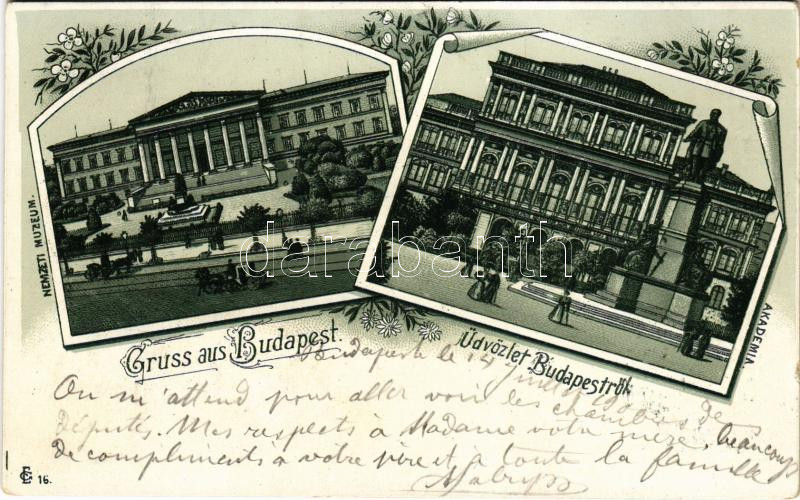 NEMZETI MUZEUM.
AKADEMIA
darabanth
Gruss aus Budapest.
Üdvözlet Budapestről
Budapeste le 14
On m'attend pour aller voir les chambres de
députés. Mes respects à Madame votre mère, beaucoup
de compliments à votre père et à toute la famille
16.